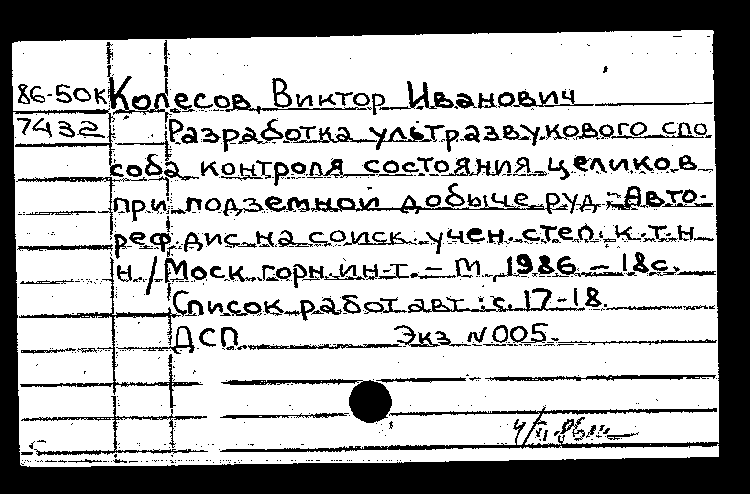 86-50К Колесов, Виктор Иванович
7432 Разработка ультразвукового спо
соба контроля состояния целиков
при подземной добыче руд: Авто-
реф. дис. на соиск. учен. степ. к.т.н
н. / Моск. горн. ин-т. – М, 1986 – 18с.
Список работ авт.: с. 17-18.
ДСП Экз N005.